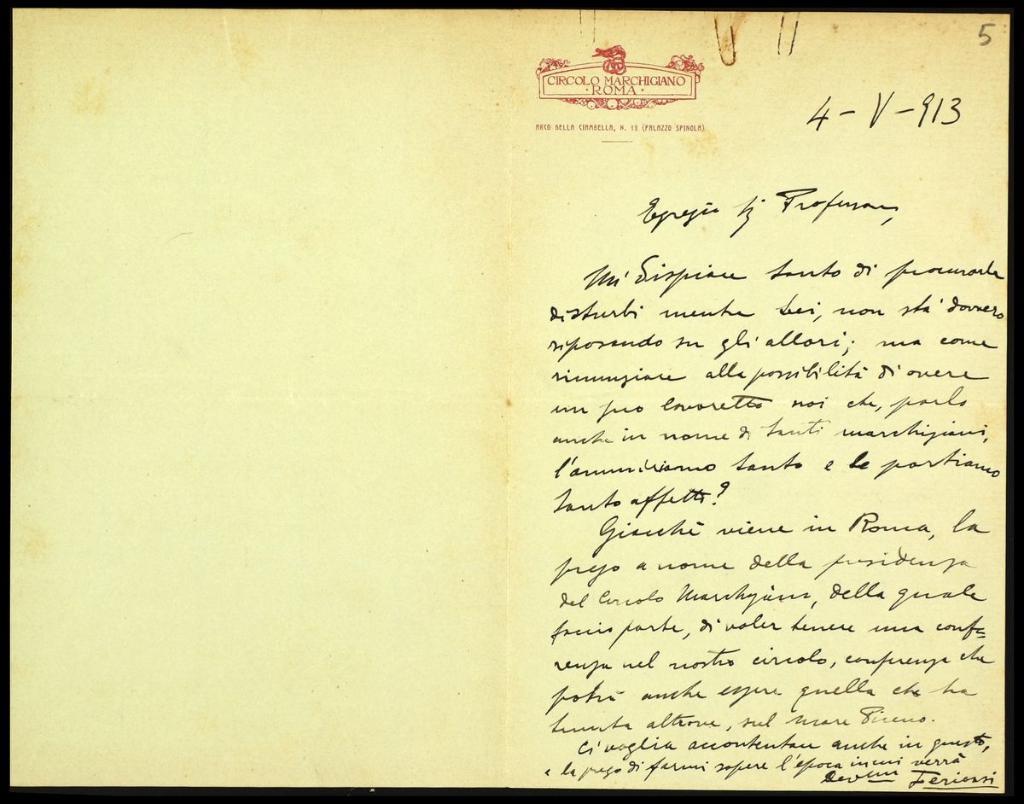 5
CIRCOLO MARCHIGIANO
· ROMA ·
ARCO DELLA CIAMBELLA, N. 19 (PALAZZO SPINOLA)
4-V-913
Egregio Sig Professore,
Mi dispiace tanto di procurarle
disturbi mentre Lei, non stà davvero
riposando su gli allori; ma come
rinunziare alla possibilità di avere
un suo lavoretto noi che, parlo
anche in nome di tanti marchigiani,
l'ammiriamo tanto e le portiamo
tanto affetto?
Giacchè viene in Roma, la
prego a nome della presidenza
del Circolo Marchigiano, della quale
faccio parte, di voler tenere una confe=
renza nel nostro circolo, conferenza che
potrà anche essere quella che ha
tenuta altrove, sul mare Piceno.
Ci voglia accontentare anche in questo,
e la prego di farmi sapere l'epoca in cui verrà